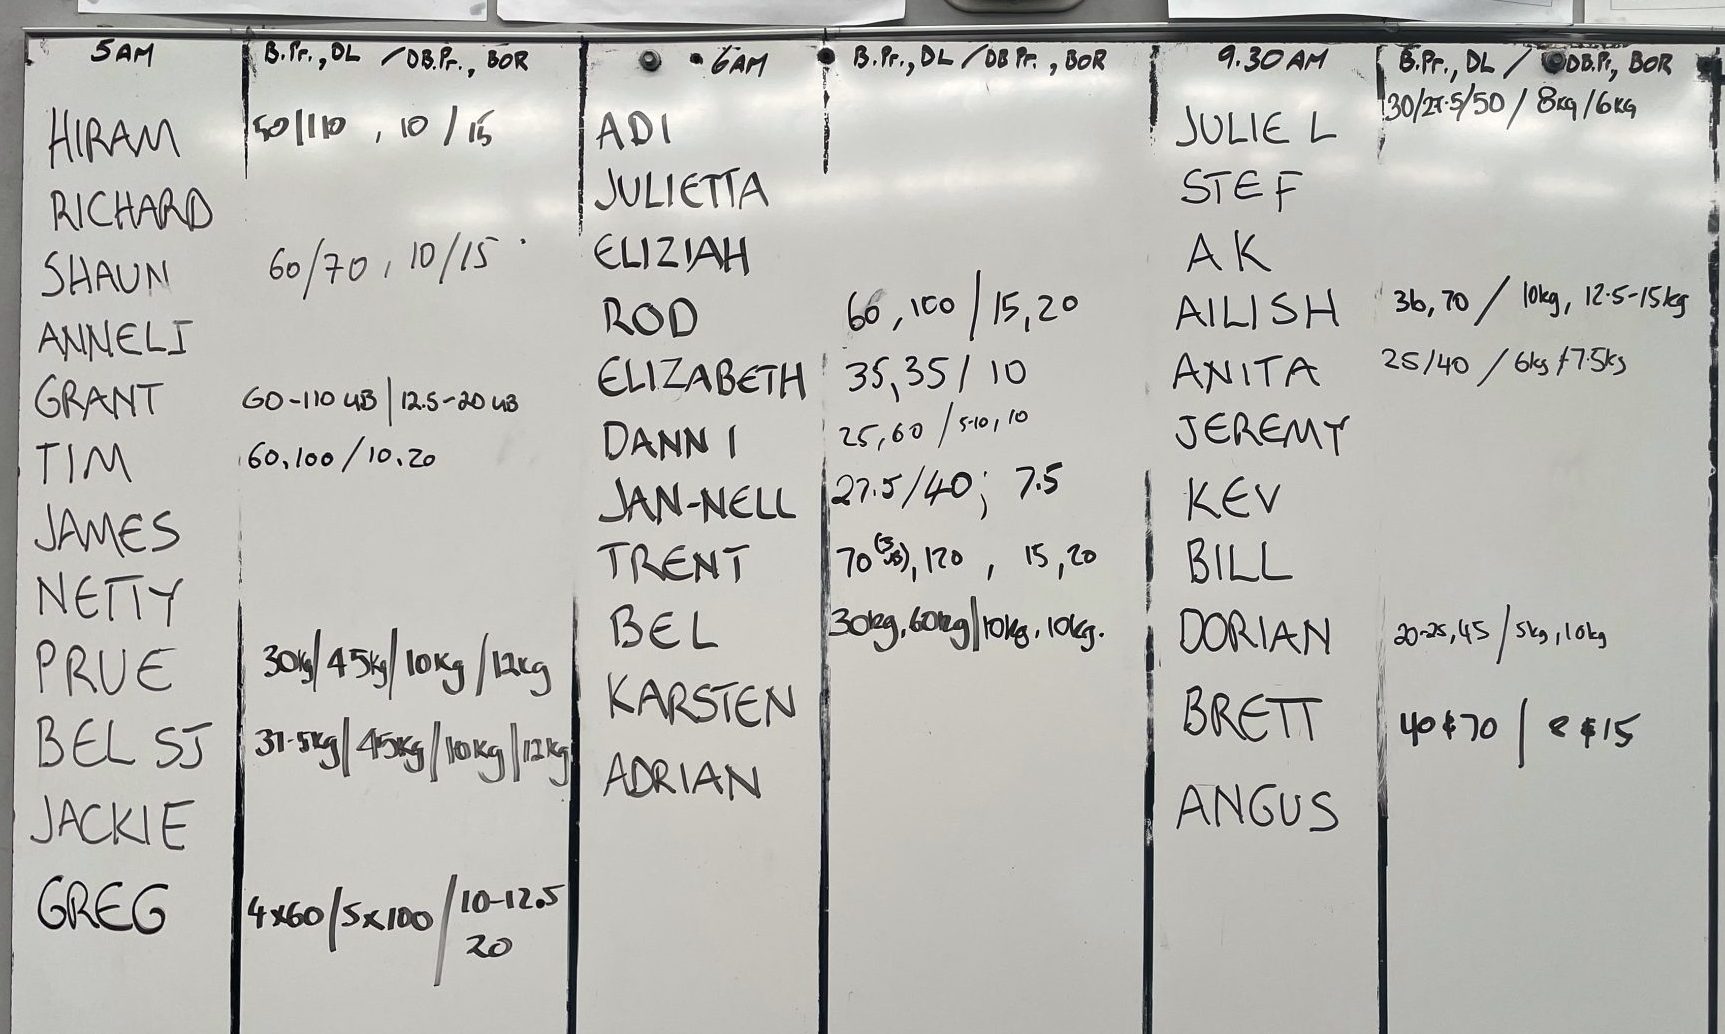 5AM B.Pr., DL / DB.Pr., BOR
HIRAM 50/110 , 10 / 15
RICHARD
SHAUN 60/70 , 10/15
ANNELI
GRANT 60-110 UB | 12.5-20 UB
TIM 60,100 / 10,20
JAMES
NETTY
PRUE 30kg/ 45kg/ 10kg /12kg
BEL SJ 45kg/ 10kg / 12kg
JACKIE
GREG 4x60 / 5x100 / 10-12.5
20
6AM B.Pr., DL / DB Pr. , BOR
ADI
JULIETTA
ELIZIAH
ROD 60 , 100 / 15, 20
ELIZABETH 35, 35 / 10
DANNI 25, 60 / 5-10, 10
JAN-NELL 27.5/40; 7.5
TRENT 70 120 , 15, 20
BEL 30kg, 60kg | 10kg, 10kg.
KARSTEN
ADRIAN
9.30AM B.Pr., DL / DB.Pr, BOR
JULIE L 30/27.5/50 / 8kg /6kg
STEF
AK
AILISH 36, 70 / 10kg, 12.5-15kg
ANITA 25/40 / 6kg /7.5kg
JEREMY
KEV
BILL
DORIAN 20-25, 45 / 5kg, 10kg
BRETT 40 & 70 | 8 & 15
ANGUS